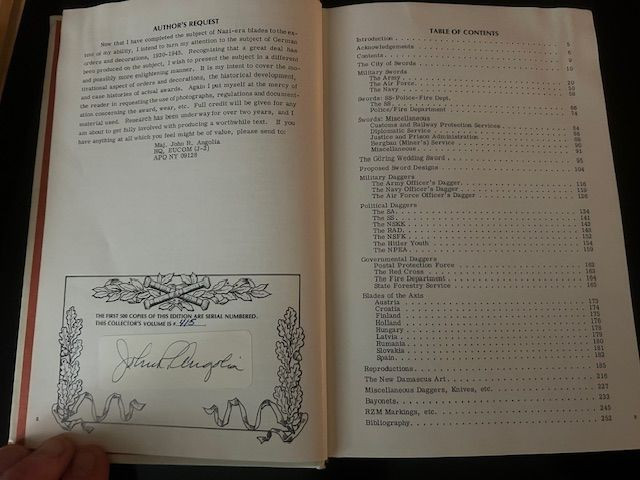 AUTHOR'S REQUEST
Now that I have completed the subject of Nazi-era blades to the ex-
tent of my ability, I intend to turn my attention to the subject of German
orders and decorations, 1920-1945. Recognizing that a great deal has
been produced on the subject, I wish to present the subject in a different
and possibly more enlightening manner. It is my intent to cover the mo-
tivational aspect of orders and decorations, the historical development,
and case histories of actual awards. Again I put myself at the mercy of
the reader in requesting the use of photographs, regulations and document-
ation concerning the award, wear, etc. Full credit will be given for any
material used. Research has been underway for over two years, and I
am about to get fully involved with producing a worthwhile text. If you
have anything at all which you feel might be of value, please send to:
Maj. John R. Angolia
HQ, EUCOM (J-2)
APO NY 09128
THE FIRST 500 COPIES OF THIS EDITION ARE SERIAL NUMBERED.
THIS COLLECTOR'S VOLUME IS # 415
John R. Angolia
8
TABLE OF CONTENTS
Introduction
Acknowledgements 5
Contents 6
The City of Swords 9
Military Swords
The Army
The Air Force
The Navy
Swords: SS-Police-Fire Dept.
The SS
Police/Fire Department 74
Swords: Miscellaneous
Customs and Railway Protection Services
Diplomatic Service 84
Justice and Prison Administration
Bergbau (Miner's) Service 90
Miscellaneous 91
The Göring Wedding Sword 95
Proposed Sword Designs 104
Military Daggers
The Army Officer's Dagger 116
The Navy Officer's Dagger 119
The Air Force Officer's Dagger 126
Political Daggers
The SA 134
The SS 141
The NSKK 143
The RAD 148
The NSFK 152
The Hitler Youth 154
The NPEA 159
Governmental Daggers
Postal Protection Force 162
The Red Cross 163
The Fire Department 164
State Forestry Service 165
Blades of the Axis
Austria 173
Croatia 174
Finland 175
Holland 176
Hungary 178
Latvia 179
Rumania 180
Slovakia 181
Spain 182
Reproductions 185
The New Damascus Art 216
Miscellaneous Daggers, Knives, etc. 227
Bayonets 233
RZM Markings, etc. 245
Bibliography 252